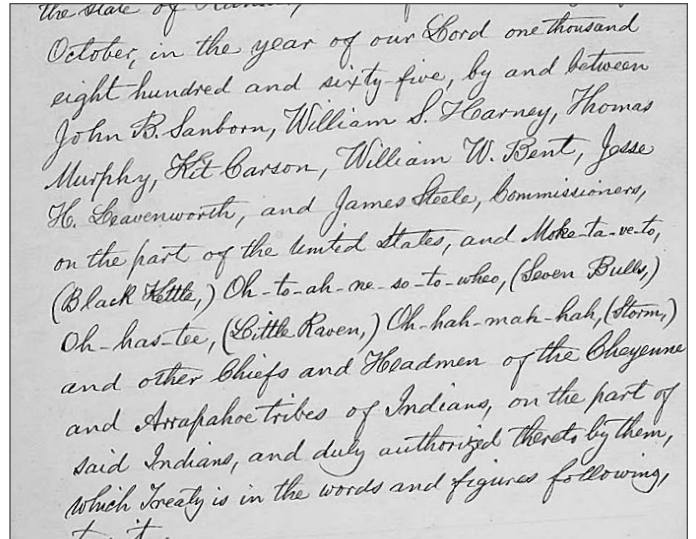 the State of
October, in the year of our Lord one thousand
eight hundred and sixty-five, by and between
John B. Sanborn, William S. Harney, Thomas
Murphy, Kit Carson, William W. Bent, Jesse
H. Leavenworth, and James Steele, Commissioners,
on the part of the United States, and Moke-ta-ve-to,
(Black Kettle,) Oh-to-ah-ne-so-to-wheo, (Seven Bulls,)
Oh-has-tee, (Little Raven,) Oh-hah-mah-hah, (Storm,)
and other Chiefs and Headmen of the Cheyenne
and Arrapahoe tribes of Indians, on the part of
said Indians, and duly authorized thereto by them,
which Treaty is in the words and figures following,